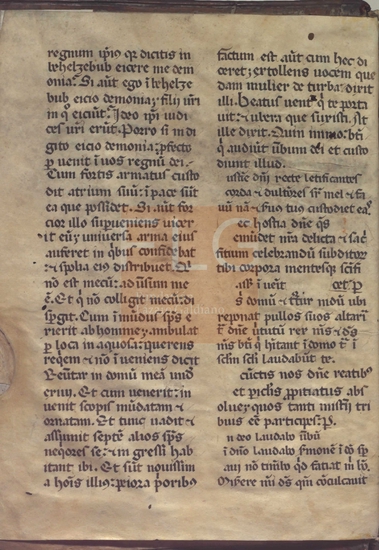 regnum ipius qr dicitis in
belzebub eicere me dem
onia. Si aut ego i belze
bub eicio demonia; filii uri
in q eiciut. Ideo ipi iudi
ces uri erut. Porro si in di
gito eicio demonia; pfecto
puenit i uos regnu dei.
Cum fortis armatus custo
dit atrium suu; i pace sut
ea que possidet. Si aut for
cior illo supueniens uicer
it eu; uniuersa arma eius
auferet in qbus confidebat
& spolia ei distribuet. Qi
no est mecu; aduersum me
e. Et q no colligit mecu; di
spgit. Cum inmudus sps e
xierit ab homine; ambulat
p loca inaquosa; querens
reqem & no inueniens dicit
Reuertar in domu mea unde
exiui. Et cum uenerit; in
uenit scopis mudatam &
ornatam. Et tunc uadit &
assumit septe alios sps
neqores se; & in gressi hab
itant ibi. Et sut nouissim
a hois illius; peiora prioribus
factum est aut cum hec di
ceret; extollens uocem que
dam mulier de turba; dixit
illi. Beatus uent q te porta
uit; & ubera que suxisti. At
ille dixit. Quin immo; bti
q audiut ubum dei et custo
diunt illud.
ustitie dni recte letificantes
corda & dulciores sr mel & fa
uu na & seruus tuus custodiet ea.
ec hostia dne qs
emudet nra delicta & sac
fitium celebrandu subditor
tibi corpora mentesq; scifi
par i uent
s domu & turtur nidu ubi
reponat pullos suos altari
tua dne uirtutu rex ms & ds
ms bti q hitant i domo tua i
sclm scli laudabut te.
cuctis nos dne reatib
et piclis ppitiatus abs
olue; quos tanti misterii tri
buis ee participes; P.
n deo laudabo ubu
i dno laudabo smone i do sp
aui no timebo qd faciat m ho.
Miserere mi ds qm conculcauit